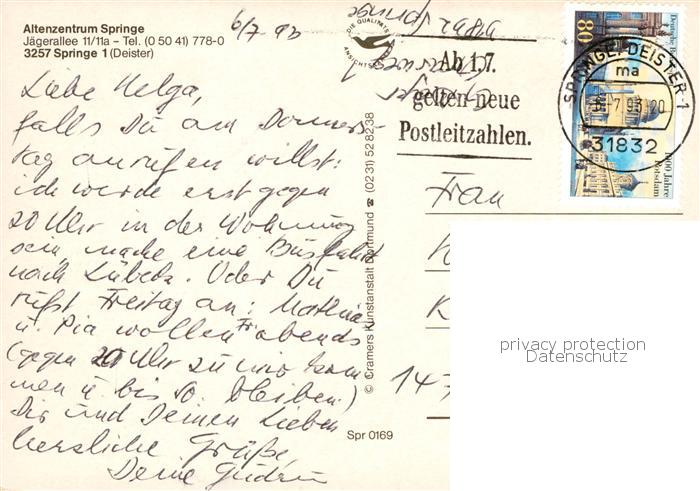 Altenzentrum Springe
Jägerallee 11/11a – Tel. (0 50 41) 778-0
3257 Springe 1 (Deister)
6/7 93
Liebe Helga,
falls Du am Donners-
tag anrufen willst:
ich werde erst gegen
20 Uhr in der Wohnung
sein, mache eine Busfahrt
nach Lübeck. Oder Du
rufst Freitag an: Mathias
u. Pia wollen Fr abends
(gegen 20 Uhr zu mir kom
men u. bis So. bleiben.)
Dir und Deinen Lieben
herzliche Grüße,
Deine Gudrun
DIE QUALITÄTS
ANSICHTS
© Cramers Kunstanstalt Dortmund ☎ (0231) 52 82 38
Spr 0169
Ab 1.7.
gelten neue
Postleitzahlen.
80
Deutsche
1000 Jahre
Potsdam
SPRINGE, DEISTER 1
ma
7.93.20
31832
Frau
K
147
privacy protection
Datenschutz